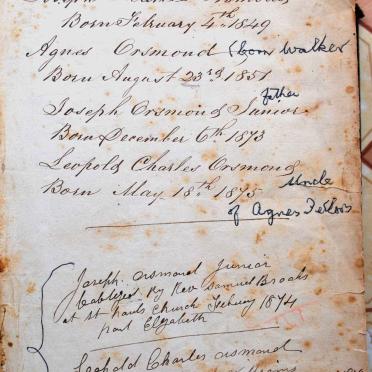 Born February 4th 1849
Agnes Orsmond (born Walker
Born August 23rd 1851
father
Joseph Orsmond Junior
Born December 6th 1873
Leopold Charles Orsmond
Born May 18th 1875 Uncle
of Agnes
Joseph Orsmond Junior
by Rev Samuel Brooks
at St Pauls Church 1874
Port Elizabeth
Leopold Charles Orsmond